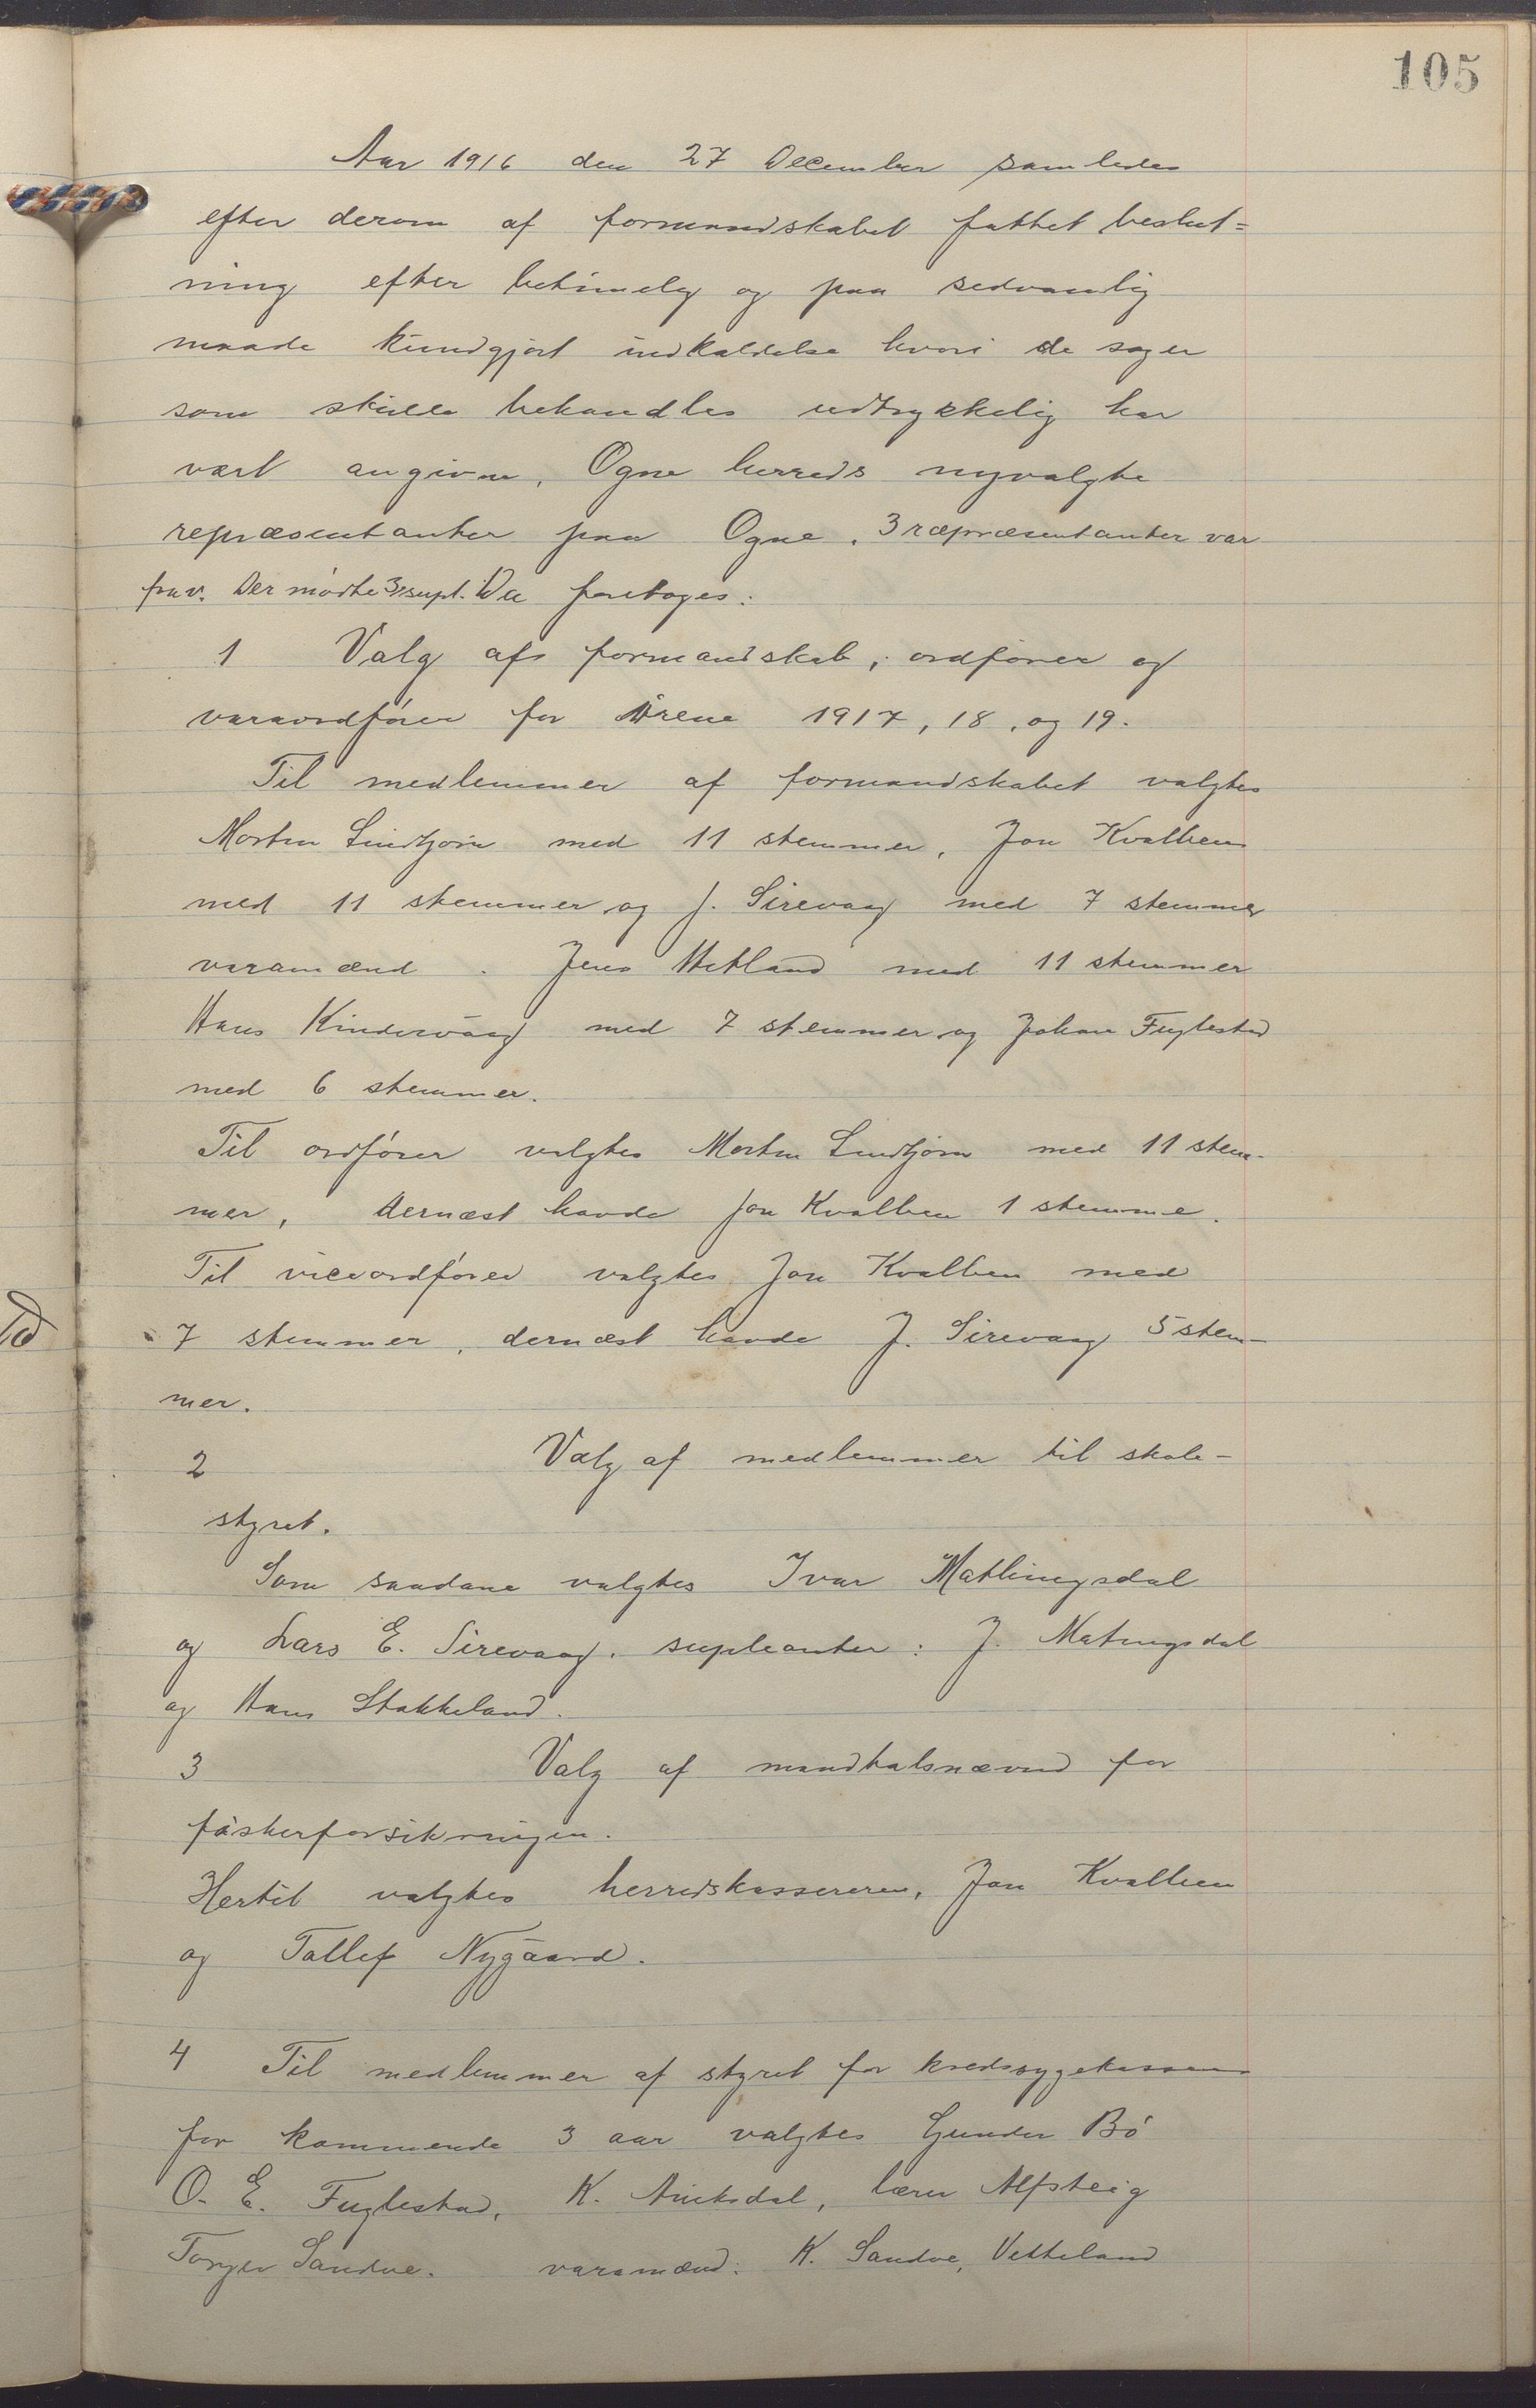 105
Aar 1916 den 27 December samledes
efter derom af formandskabet fattet beslut=
ning efter betimelig og paa sedvanlig
maade kundgjort indkaldelse hvori de sager
som skulle behandles udtrykkelig har
vært angivne, Ogne herreds nyvalgte
repræsentanter paa Ogne. 3 ræpræsentanter var
frav. Der mødte 3 supl. Da foretoges:
1 Valg af formandskab, ordfører og
varaordfører for Årene 1917, 18, og 19.
Til medlemmer af formandskabet valgtes
Morten Lindtjørn med 11 stemmer, Jon Kvalbein
med 11 stemmer og J. Sirevaag med 7 stemmer
varamænd. Jens Hetland med 11 stemmer
Hans Kindervaag med 7 stemmer og Johan Fuglestad
med 6 stemmer.
Til ordfører valgtes Morten Lindtjørn med 11 stem-
mer, dernæst havde Jon Kvalbein 1 stemme.
Til viceordfører valgtes Jon Kvalbein med
7 stemmer, dernæst havde J. Sirevaag 5 stem-
mer.
2 Valg af medlemmer til skole-
styret.
Som saadane valgtes Ivar Matlingsdal
og Lars E. Sirevaag. supleanter: J. Matingsdal
og Hans Stokkeland.
3 Valg af mandtalsnævnd for
fiskerforsikringen.
Hertil valgtes herredskassereren, Jon Kvalbein
og Tallef Nygaard.
4 Til medlemmer af styret for kredssygekassen
for kommende 3 aar valgtes Gunder Bø
O. E. Fuglestad, K. Aniksdal, lærer Alfsteig
Torger Sandve. varamænd: K. Sandve, Vetteland